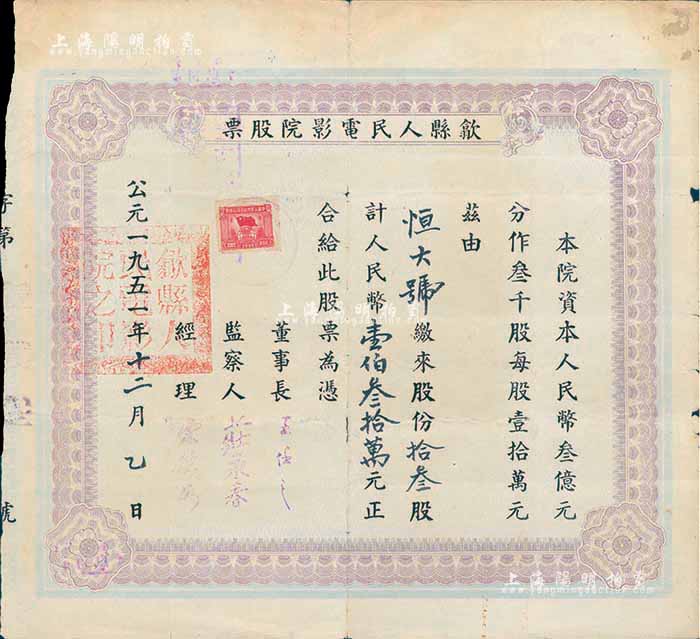 上海陽明拍賣
www.yangmingauction.com
歙縣人民電影院股票
本院資本人民幣叁億元
分作叁千股每股壹拾萬元
茲由
恒大號繳來股份拾叁股
計人民幣壹佰叁拾萬元正
合給此股票為憑
董事長
監察人
經理
公元一九五一年十二月 日
歙縣人
民電影
院之印
字第
號
上海陽明拍賣
上海陽明拍賣
www.yangmingauction.com